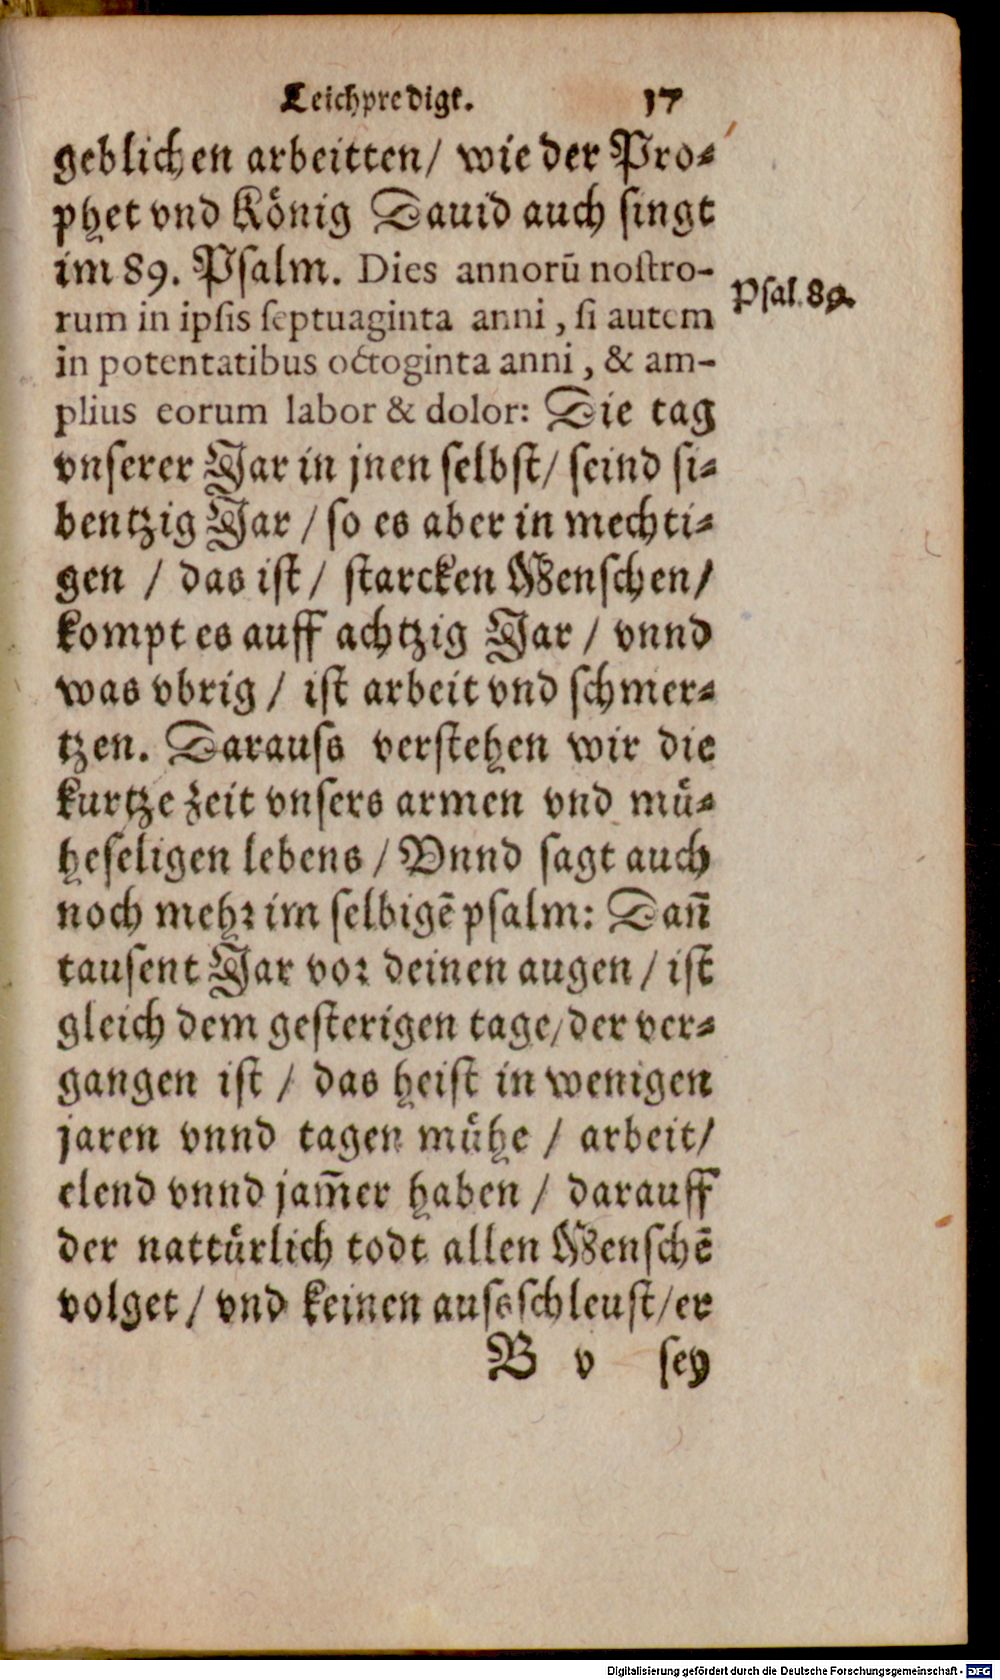 Leichpredigt. 17
geblichen arbeitten/ wie der Pro-
phet vnd König Dauid auch singt
im 89. Psalm. Dies annorū nostro-
Psal. 89.
rum in ipsis septuaginta anni, si autem
in potentatibus octoginta anni, & am-
plius eorum labor & dolor: Die tag
vnserer Jar in jnen selbst/ seind si-
bentzig Jar / so es aber in mechti-
gen / das ist / starcken Menschen/
kompt es auff achtzig Jar / vnnd
was vbrig / ist arbeit vnd schmer-
tzen. Darauss verstehen wir die
kurtze zeit vnsers armen vnd mü-
heseligen lebens / Vnnd sagt auch
noch mehr im selbigē psalm: Dañ
tausent Jar vor deinen augen / ist
gleich dem gesterigen tage/ der ver-
gangen ist / das heist in wenigen
jaren vnnd tagen mühe / arbeit/
elend vnnd jam̄er haben / darauff
der nattürlich todt allen Menschē
volget / vnd keinen aussschleust/ er
B v sey
Digitalisierung gefördert durch die Deutsche Forschungsgemeinschaft - DFG